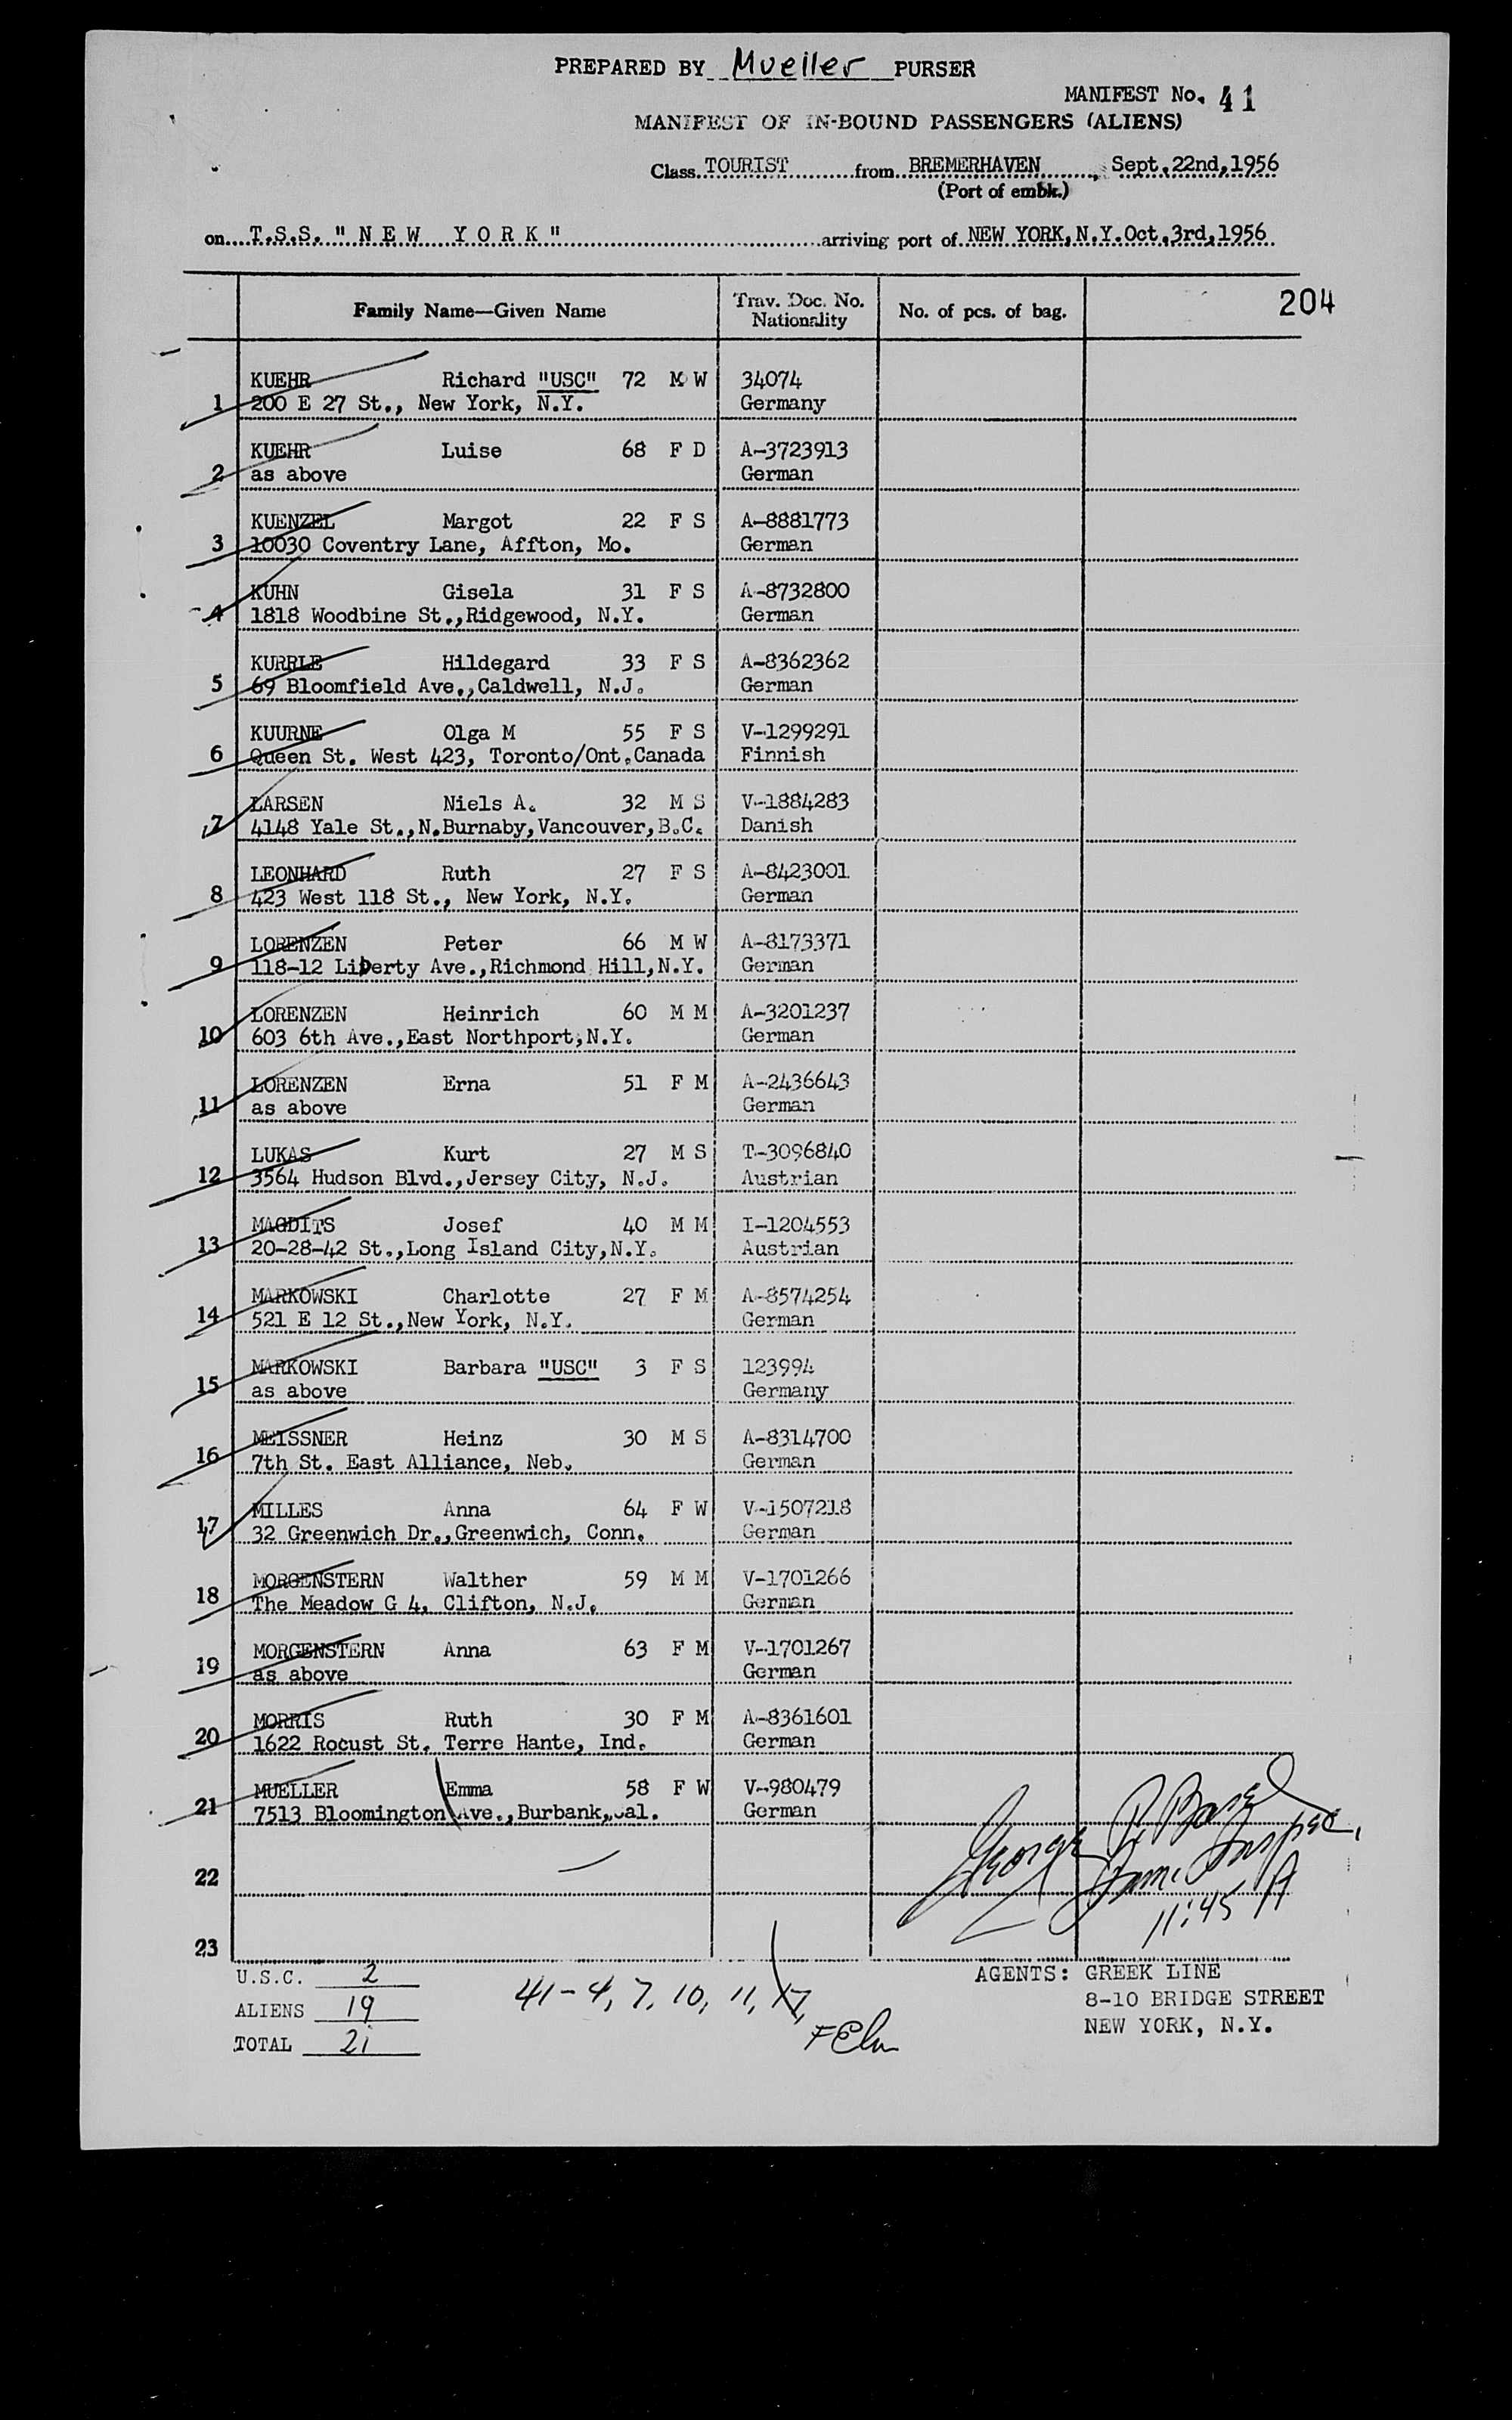 PREPARED BY Mueller PURSER
MANIFEST No. 41
MANIFEST OF IN-BOUND PASSENGERS (ALIENS)
Class TOURIST from BREMERHAVEN, Sept.22nd,1956
(Port of embk.)
on T.S.S. "NEW YORK" arriving port of NEW YORK,N.Y.Oct.3rd,1956
Family Name—Given Name Trav. Doc. No. Nationality No. of pcs. of bag. 204
1 KUEHR Richard "USC" 72 M W 34074
200 E 27 St., New York, N.Y. Germany
2 KUEHR Luise 68 F D A-3723913
as above German
3 KUENZEL Margot 22 F S A-8881773
10030 Coventry Lane, Affton, Mo. German
4 KUHN Gisela 31 F S A-8732800
1818 Woodbine St.,Ridgewood, N.Y. German
5 KURRLE Hildegard 33 F S A-8362362
69 Bloomfield Ave.,Caldwell, N.J. German
6 KUURNE Olga M 55 F S V-1299291
Queen St. West 423, Toronto/Ont.Canada Finnish
7 LARSEN Niels A. 32 M S V-1884283
4148 Yale St.,N.Burnaby,Vancouver,B.C. Danish
8 LEONHARD Ruth 27 F S A-8423001
423 West 118 St., New York, N.Y. German
9 LORENZEN Peter 66 M W A-8173371
118-12 Liberty Ave.,Richmond Hill,N.Y. German
10 LORENZEN Heinrich 60 M M A-3201237
603 6th Ave.,East Northport,N.Y. German
11 LORENZEN Erna 51 F M A-2436643
as above German
12 LUKAS Kurt 27 M S T-3096840
3564 Hudson Blvd.,Jersey City, N.J. Austrian
13 MAGDITS Josef 40 M M I-1204553
20-28-42 St.,Long Island City,N.Y. Austrian
14 MARKOWSKI Charlotte 27 F M A-8574254
521 E 12 St.,New York, N.Y. German
15 MARKOWSKI Barbara "USC" 3 F S 123994
as above Germany
16 MEISSNER Heinz 30 M S A-8314700
7th St. East Alliance, Neb. German
17 MILLES Anna 64 F W V-1507218
32 Greenwich Dr.,Greenwich, Conn. German
18 MORGENSTERN Walther 59 M M V-1701266
The Meadow G 4, Clifton, N.J. German
19 MORGENSTERN Anna 63 F M V-1701267
as above German
20 MORRIS Ruth 30 F M A-8361601
1622 Rocust St. Terre Hante, Ind. German
21 MUELLER Emma 58 F W V-980479
7513 Bloomington Ave.,Burbank,Cal. German
22
23
George P.
Imm. Inspec.
11:45 A
U.S.C. 2
ALIENS 19
TOTAL 21
41-4, 7, 10, 11, 17,
AGENTS: GREEK LINE
8-10 BRIDGE STREET
NEW YORK, N.Y.